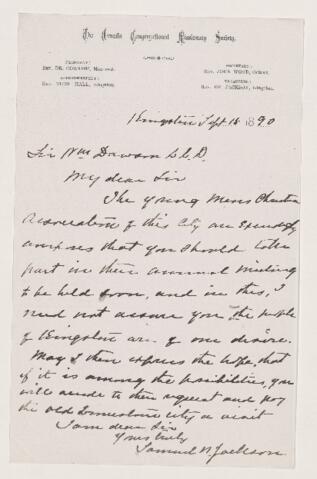 The Canada Congregational Missionary Society.
Kingston Sept 18 1890
Sir Wm Dawson LL.D.
My dear Sir
The Young Mens Christian
Association of this City are exceedingly
anxious that you should take
part in their annual meeting
to be held soon, and in this, I
need not assure you the people
of Kingston are of one desire.
May I then express the hope, that
if it is among the possibilities, you
will accede to their request and pay
the old Limestone city a visit
I am dear Sir
Yours truly
Samuel N Jackson